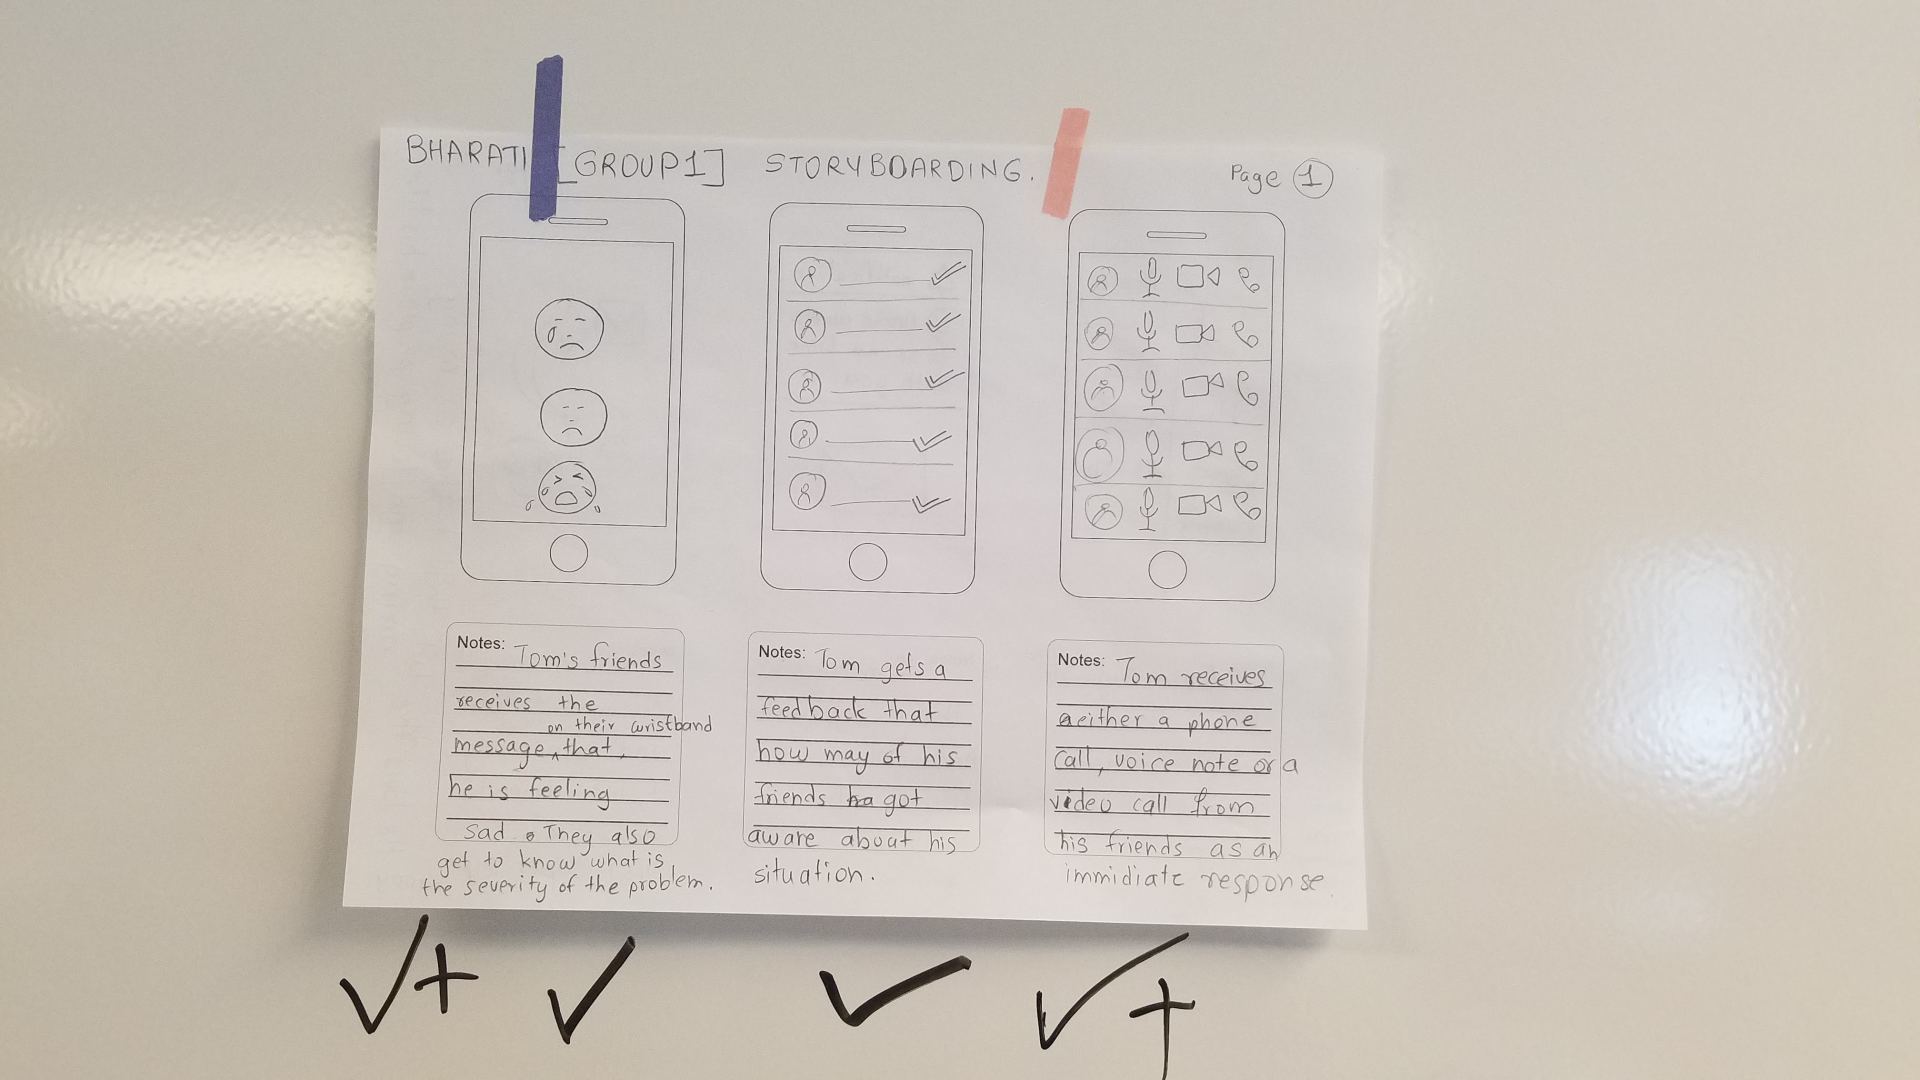 BHARATI [GROUP1] STORYBOARDING. Page 1
Notes: Tom's friends
receives the
on their wristband
message, that
he is feeling
sad. They also
get to know what is
the severity of the problem.
Notes: Tom gets a
feedback that
how may of his
friends ha got
aware about his
situation.
Notes: Tom receives
aeither a phone
call, voice note or a
video call from
his friends as an
immidiate response.
✓+ ✓ ✓ ✓+